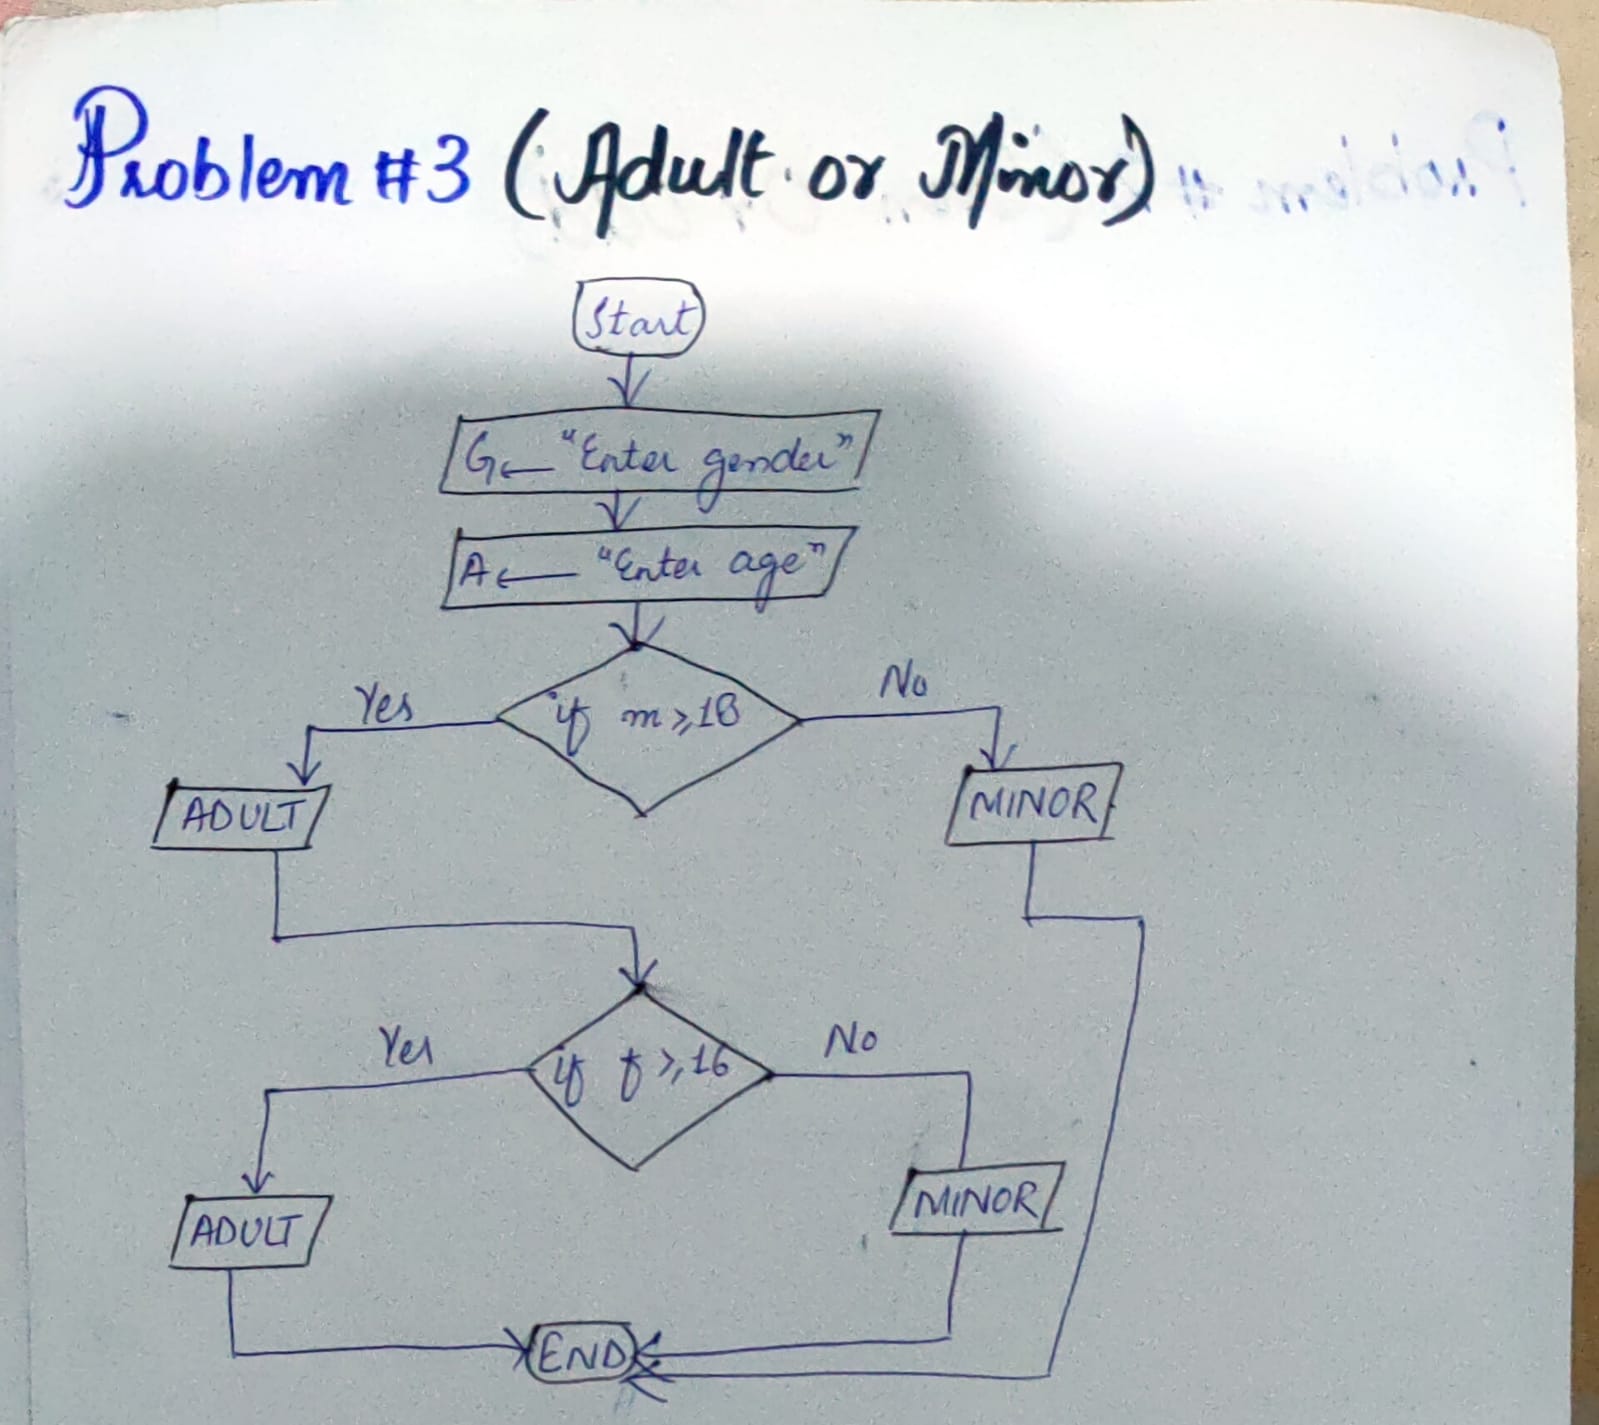 Problem #3 (Adult or Minor)
Start
G← "Enter gender"
A← "Enter age"
if m≥18
Yes
No
ADULT
MINOR
if f≥16
Yes
No
ADULT
MINOR
END